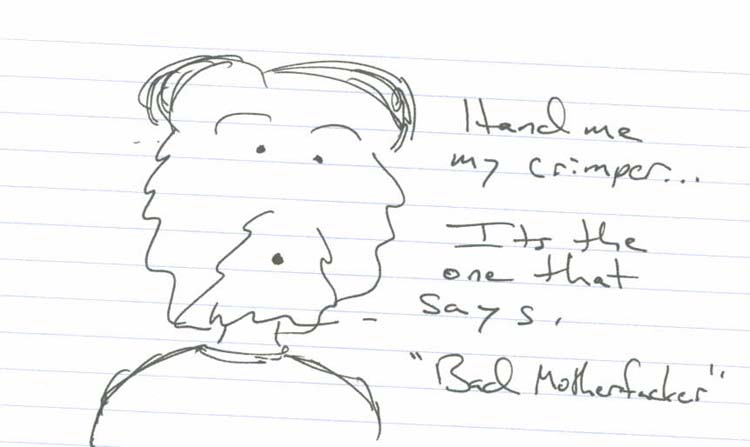 Hand me
my crimper...
Its the
one that
says.
"Bad Motherfucker"